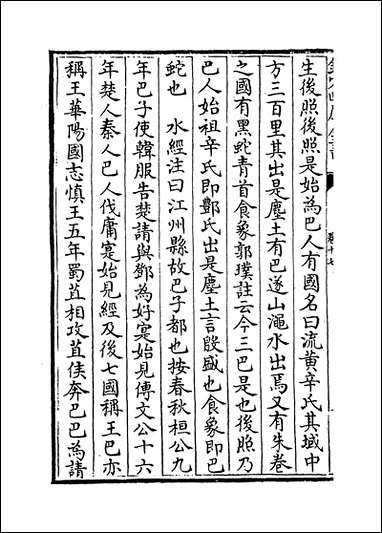 生後照後照是始為巴人有國名曰流黄辛氏其域中
方三百里其出是塵土有巴遂山澠水出焉又有朱卷
之國有黑蛇青首食象郭璞註云今三巴是也後照乃
巴人始祖辛氏即酆氏出是塵土言殷盛也食象即巴
蛇也　水經注曰江州縣故巴子都也按春秋桓公九
年巴子使韓服告楚請與鄧為好寔始見傳文公十六
年楚人秦人巴人伐庸寔始見經及後七國稱王巴亦
稱王華陽國志慎王五年蜀苴相攻苴侯奔巴巴為請